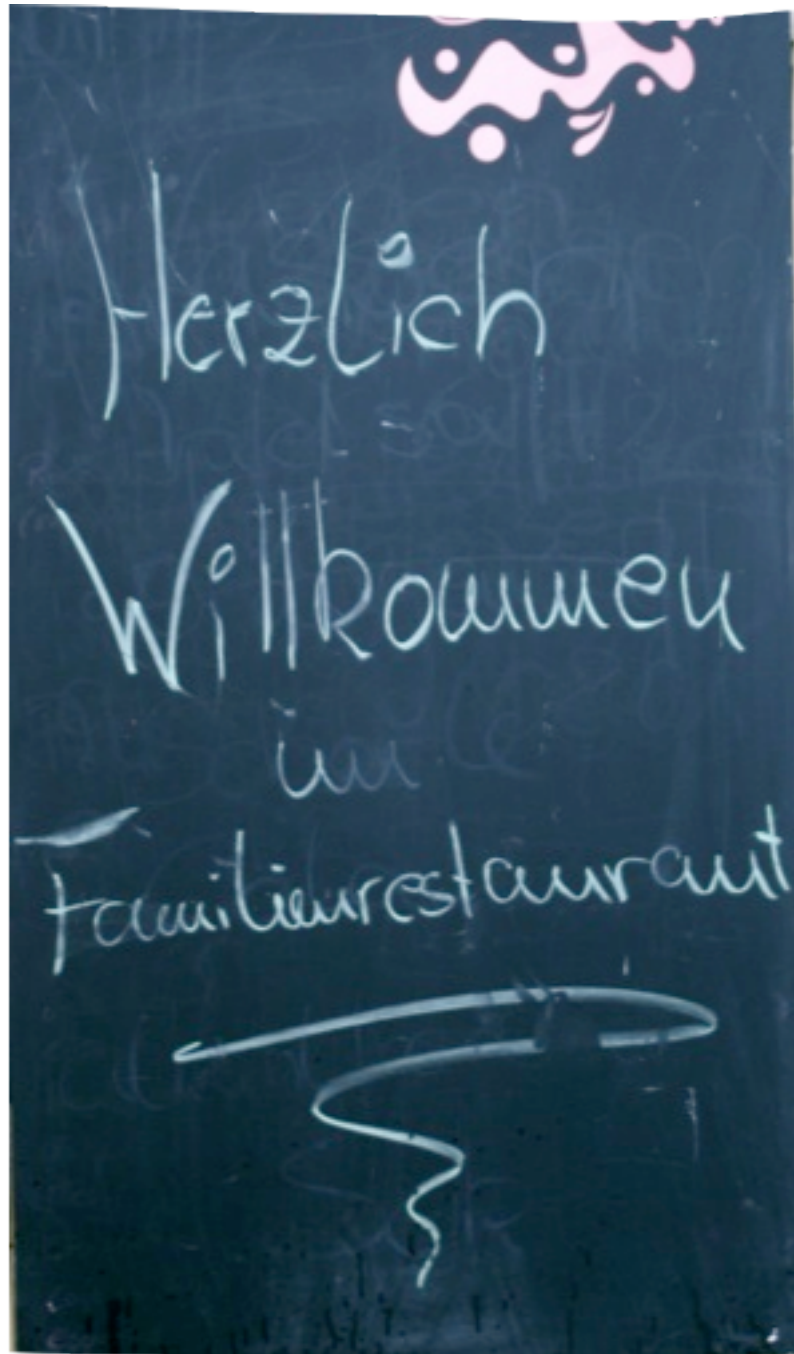 Herzlich
Willkommen
im
Familienrestaurant